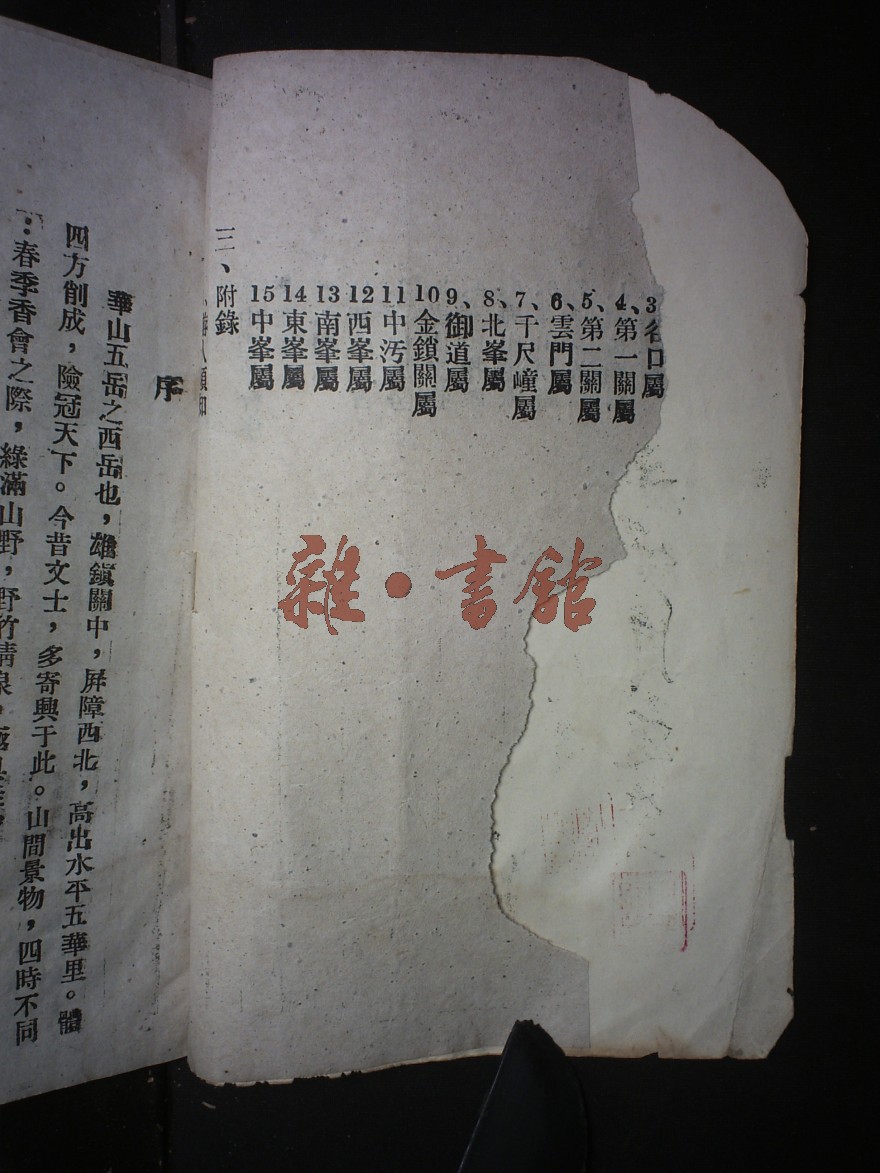 3、谷口屬
4、第一關屬
5、第二關屬
6、雲門屬
7、千尺㠉屬
8、北峯屬
9、御道屬
10金鎖關屬
11中汚屬
12西峯屬
13南峯屬
14東峯屬
15中峯屬
三、附錄
序
華山五岳之西岳也，雄鎭關中，屏障西北，高出水平五華里。體
四方削成，險冠天下。今昔文士，多寄興于此。山間景物，四時不同
：春季香會之際，綠滿山野，野竹清泉，
雜·書館